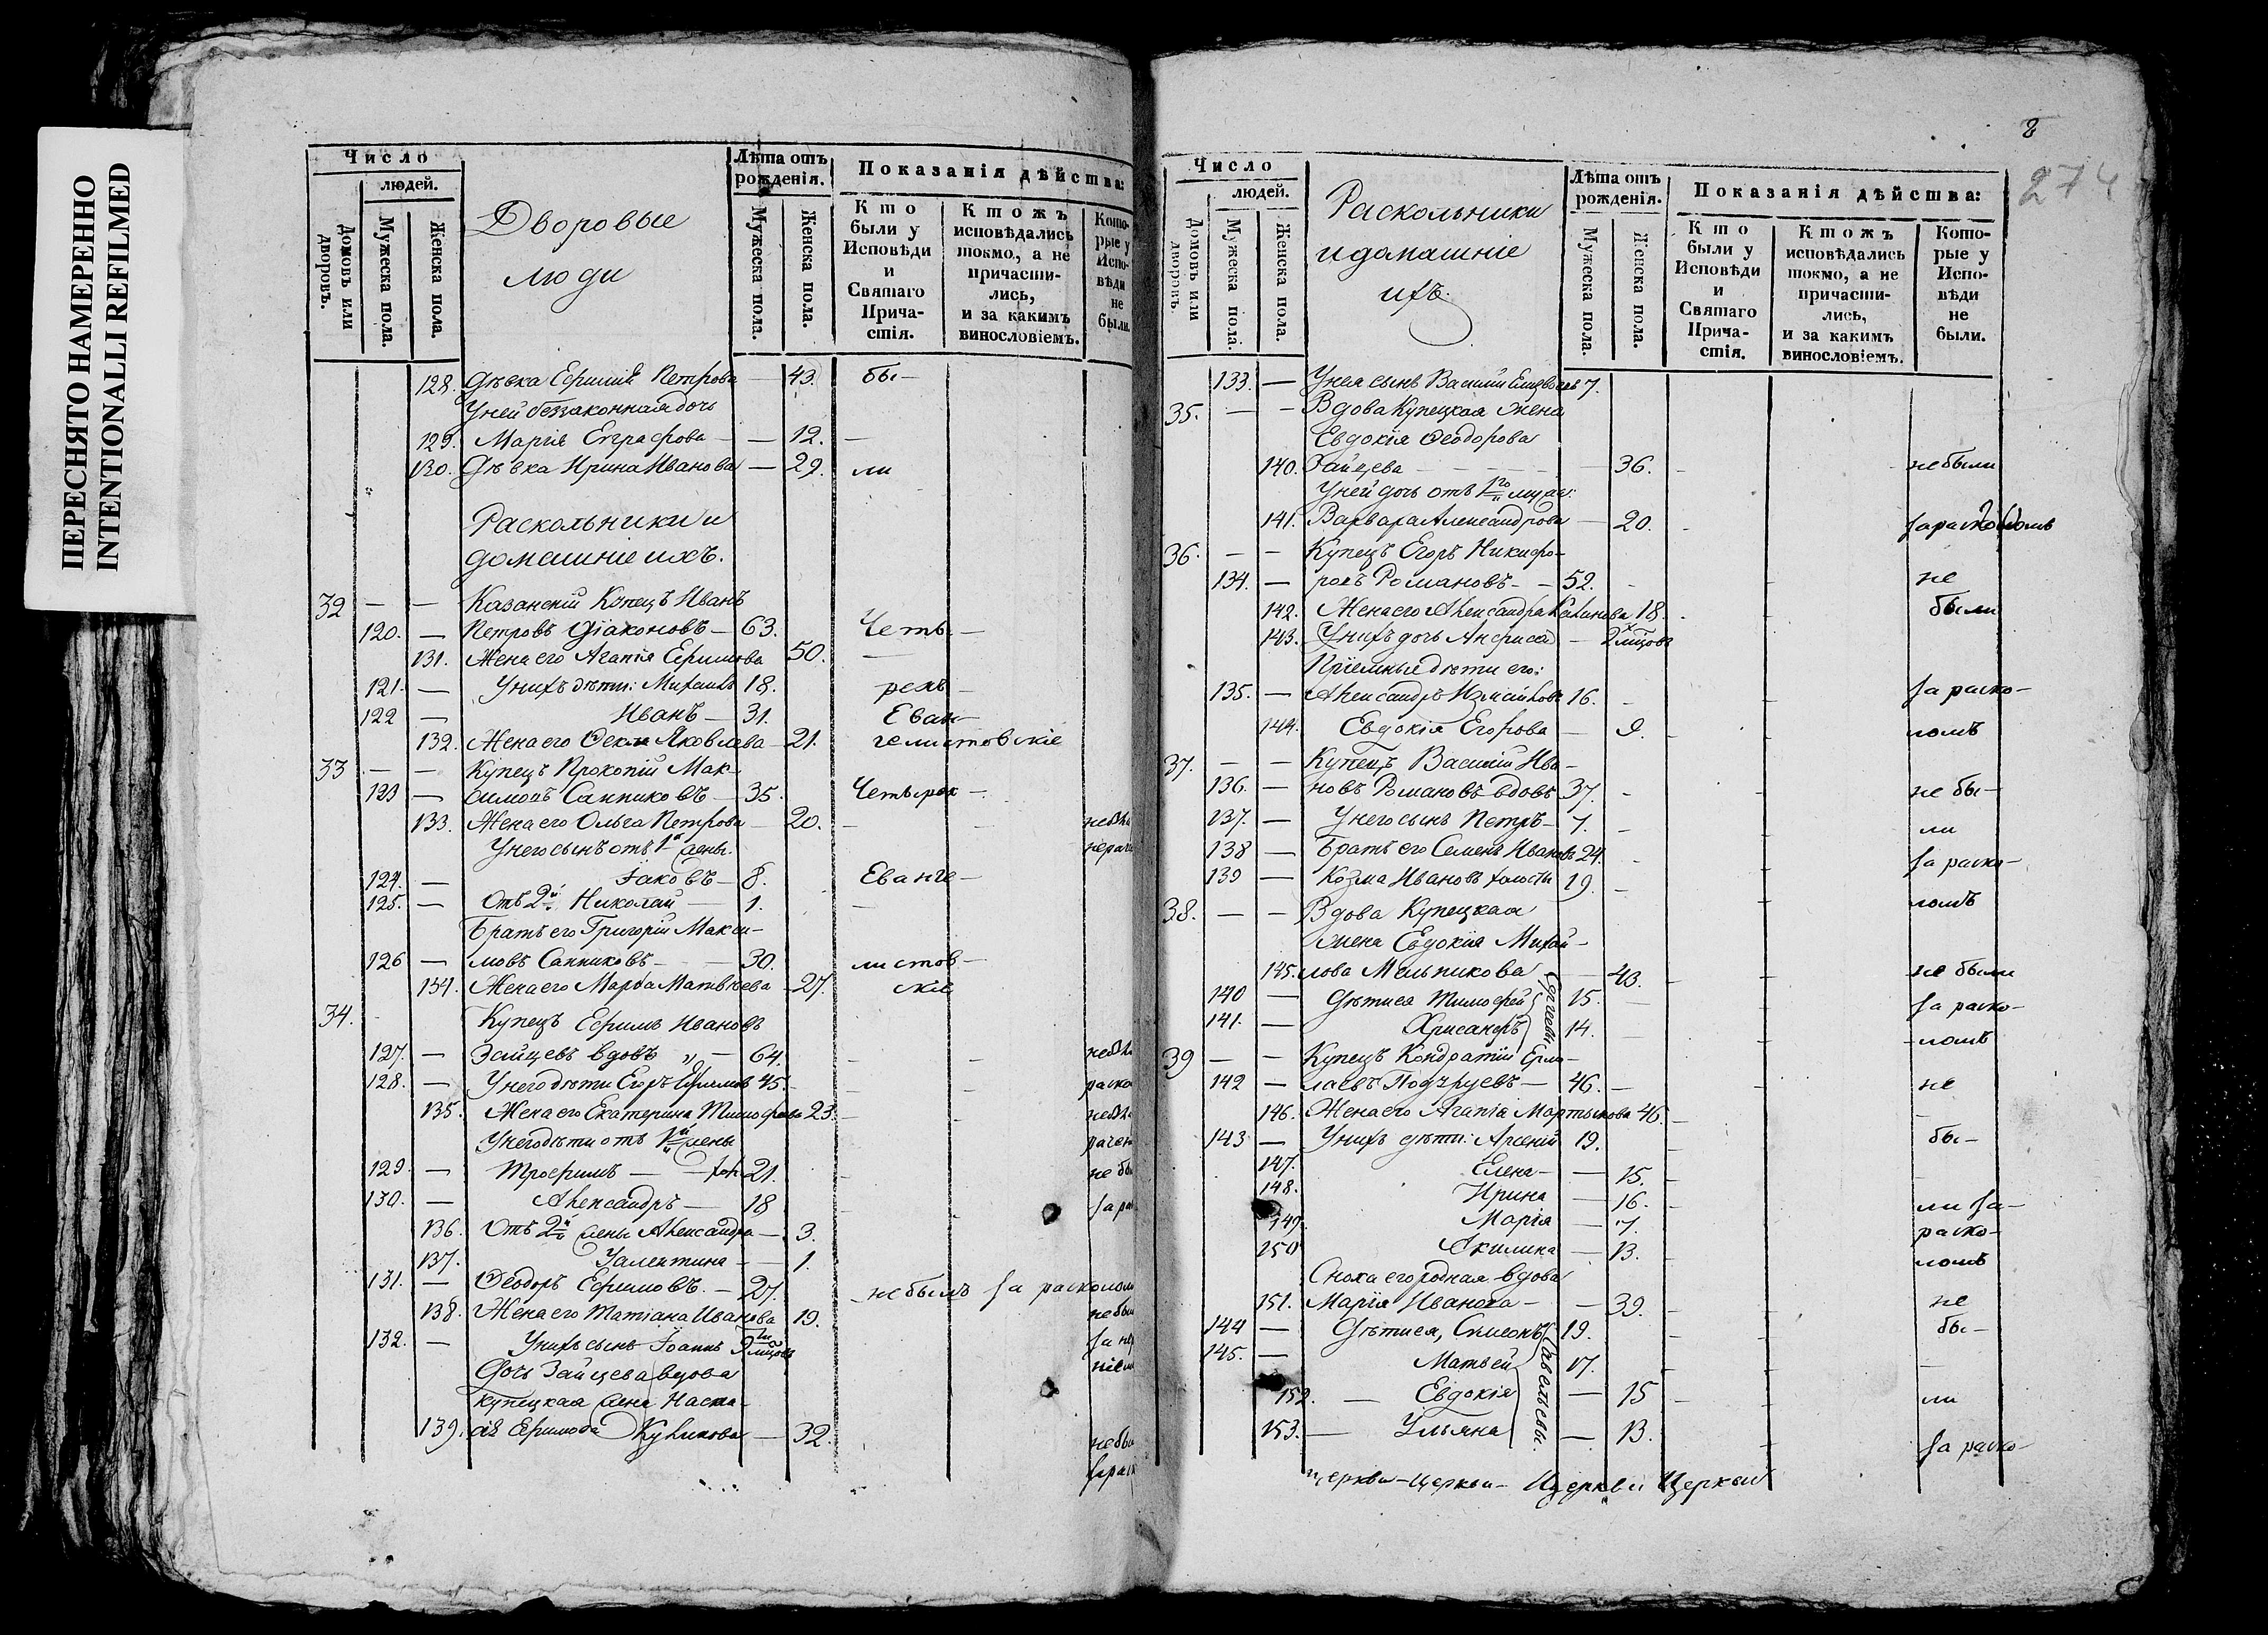 ПЕРЕСНЯТО НАМЕРЕННО
INTENTIONALLI REFILMED
Число
людей.
Домовъ или дворовъ.
Мужеска пола.
Женска пола.
Дворовые
люди
Лѣта отъ рожденія.
Мужеска пола.
Женска пола.
Показанія дѣйства:
Кто были у Исповѣди и Святаго Причастія.
Ктожъ исповѣдались токмо, а не причастились, и за какимъ винословіемъ.
Которые у Исповѣди не были.
128. Дѣвка Ефимія Петрова — 43. бы-
У ней беззаконная дочь
129. Марія Евграфова — 12. —
130. Дѣвка Ирина Иванова — 29. ли
Раскольники и
домашніе ихъ.
32 — — Казанскій Купецъ Иванъ
120. — Петровъ Діаконовъ — 63. Четы-
131. Жена его Агапія Ефимова 50. —
121. — У нихъ дѣти: Михаилъ 18. рехъ-
122 — Иванъ — 31. Еван-
132. Жена его Ѳекла Яковлева 21. гелистовскіе
33 — — Купецъ Прокопій Мак-
123 — симовъ Санниковъ — 35. Четырех-
133. Жена его Ольга Петрова 20. —
У него сынъ отъ 1й жены.
124. — Іаковъ — 8. Еванге-
125. — Отъ 2й Николай — 1. —
Братъ его Григорій Макси-
126 — мовъ Санниковъ — 30. листов-
134. Жена его Марѳа Матвѣева 27. скіе
34. Купецъ Ефимъ Ивановъ
127. — Зайцевъ вдовъ „ — 64.
128. — У него дѣти Егоръ Ефимовъ 45.
135. Жена его Екатерина Тимофеева 23.
У него дѣти отъ 1й жены
129. — Трофимъ — — хол 21. не бы
130. — Александръ — 18
136. Отъ 2й жены Александра — 3.
137. Валентина — 1.
131. — Ѳеодоръ Ефимовъ. — 27. не былъ за расколом
138. Жена его Татіана Иванова 19. не бы
132. — У нихъ сынъ Іоаннъ 9 мѣсяцовъ
Дочь Зайцева вдова
купецкая жена Наста-
139. сія Ефимова Куликова — 32. не бы
8
274
Число
людей.
Домовъ или дворовъ.
Мужеска пола.
Женска пола.
Раскольники
и домашніе
ихъ.
Лѣта отъ рожденія.
Мужеска пола.
Женска пола.
Показанія дѣйства:
Кто были у Исповѣди и Святаго Причастія.
Ктожъ исповѣдались токмо, а не причастились, и за какимъ винословіемъ.
Которые у Исповѣди не были.
133. — У нея сынъ Василій 7.
35. — — Вдова Купецкая жена
Евдокія Ѳеодорова
140. Зайцева 36. не были
У ней дочь отъ 1го мужа:
141. Варвара Александрова — 20. за расколомъ
36. — — Купецъ Егоръ Никифо-
134. — ровъ Романовъ — 52. не
142. Жена его Александра 18. были
143. У нихъ дочь Анфиса — 2х мѣсяцовъ
Пріемныя дѣти его:
135. — Александръ Измайловъ 16. за раско-
144. Евдокія Егорова — 9. ломъ
37. — — Купецъ Василій Ива-
136. — новъ Романовъ вдовъ 37. не бы-
137. — У него сынъ Петръ — 7. ли
138 — Братъ его Семенъ Ивановъ 24. за раско-
139 — Козма Ивановъ холосты 19. ломъ
38. — — Вдова Купецкая
жена Евдокія Михай-
145. лова Мельникова — 43. не были
140 — Дѣти ея Тимофей 15. за раско-
141. — Хрисанфъ 14. ломъ
Сергѣевы
39 — — Купецъ Кондратій Ермо-
142 — лаевъ Подуруевъ — 46. — не
146. Жена его Агапія Мартынова 46.
143 — У нихъ дѣти: Арсеній 19. бы-
147. Елена — — 15.
148. Ирина — 16. ли за-
149. Марія — 7. раско-
150 Акилина — 13. ломъ
Сноха его родная вдова
151. Марія Иванова — — 39. не
144 — Дѣти ея, Симеонъ 19. бы-
145. — Матвей 17. —
152. — Евдокія — 15 ли
153. — Ульяна — 13. за раско-
Савельевы.
церкви - церкви - Церкви Церкви